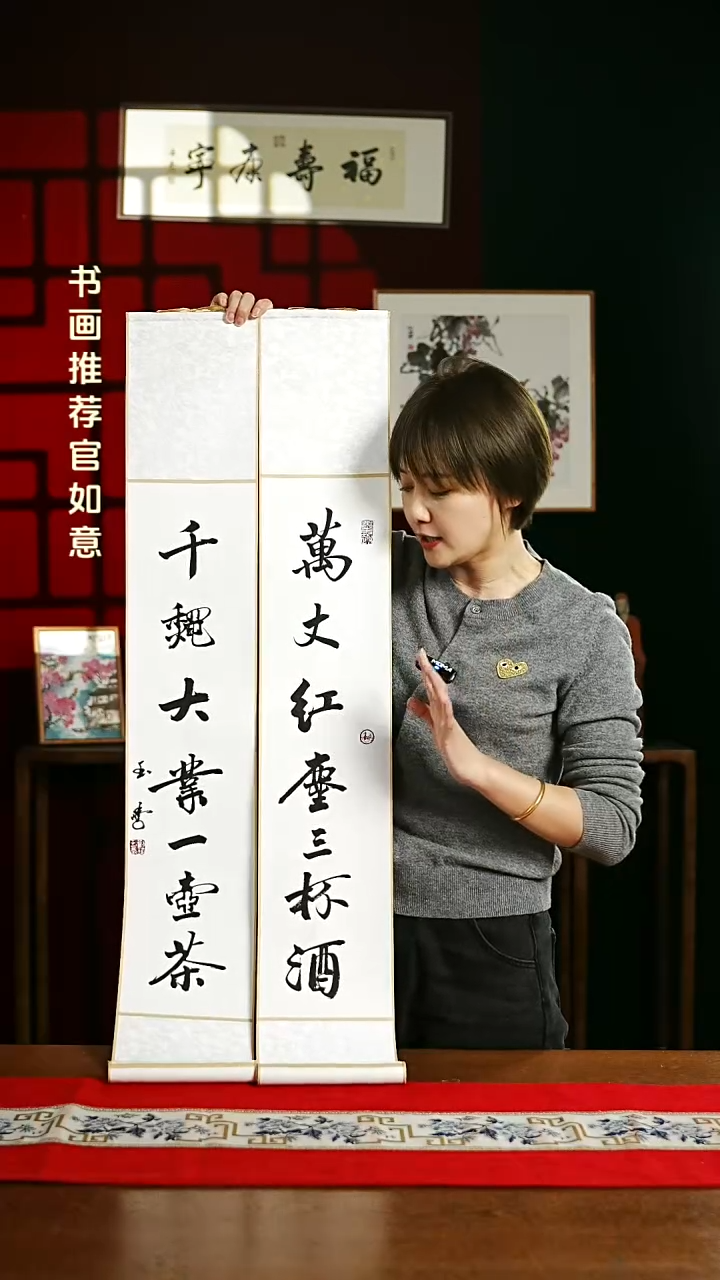 福壽康寧
书画推荐官如意
萬丈红塵三杯酒
千龝大業一壺茶